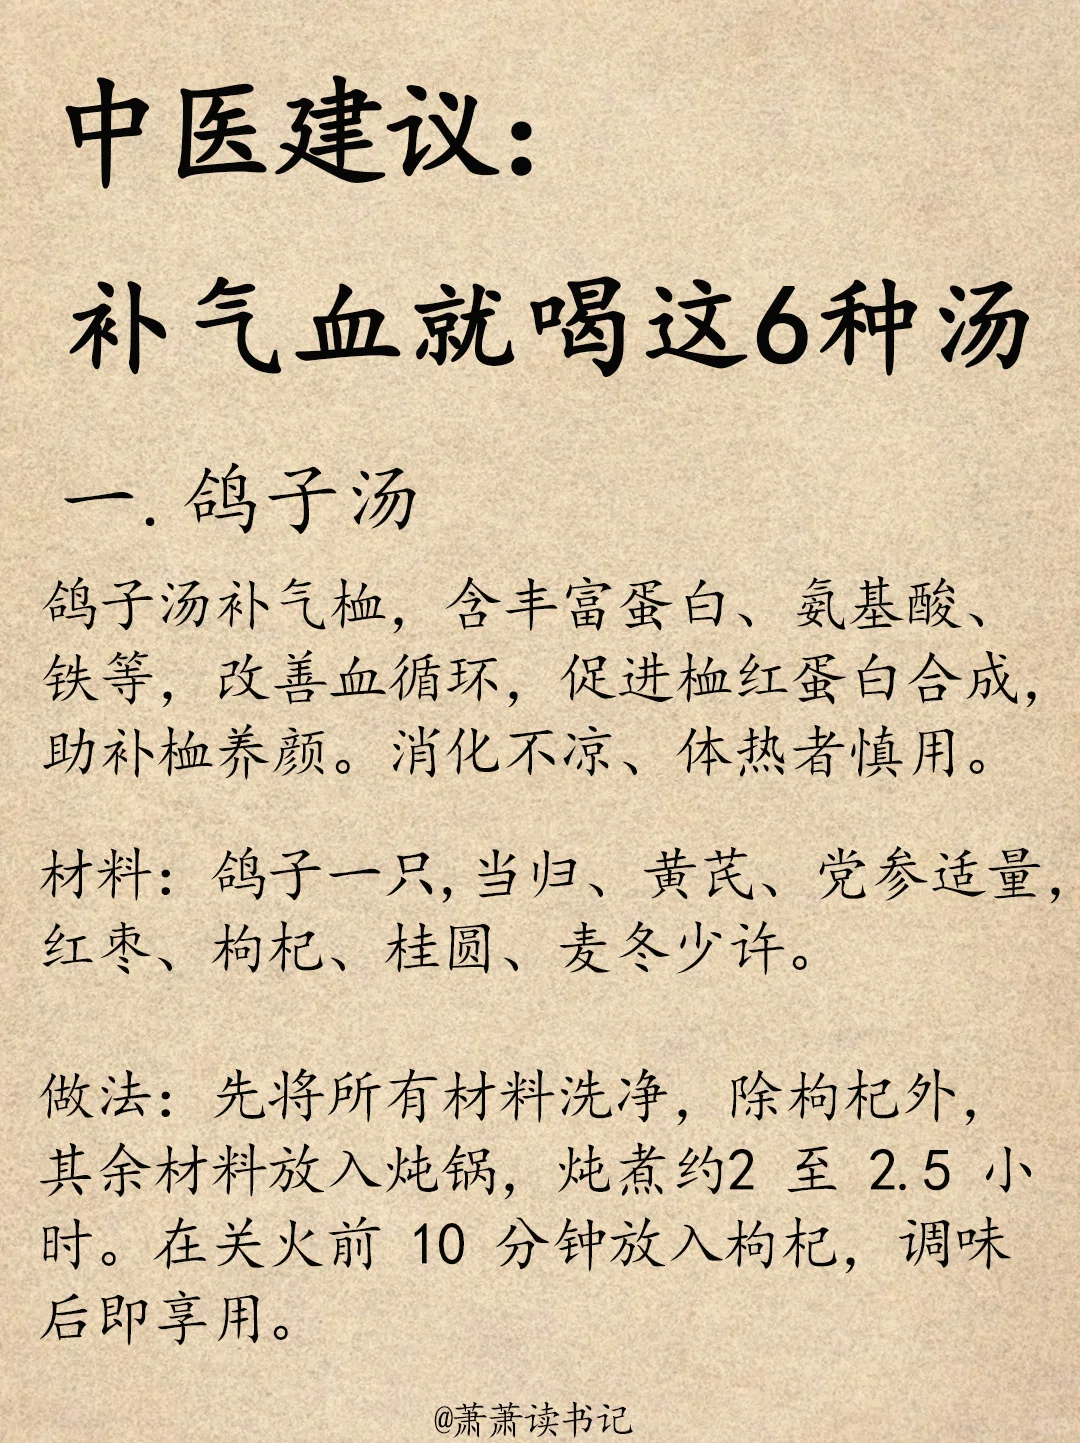 中医建议：
补气血就喝这6种汤
一.鸽子汤
鸽子汤补气桖，含丰富蛋白、氨基酸、
铁等，改善血循环，促进桖红蛋白合成，
助补桖养颜。消化不凉、体热者慎用。
材料：鸽子一只,当归、黄芪、党参适量，
红枣、枸杞、桂圆、麦冬少许。
做法：先将所有材料洗净，除枸杞外，
其余材料放入炖锅，炖煮约2 至 2.5 小
时。在关火前 10 分钟放入枸杞，调味
后即享用。
@萧萧读书记